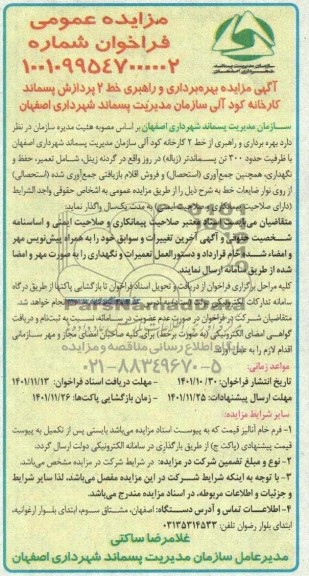 سازمان مدیریت پسماند
شهرداری اصفهان
مزایده عمومی
فراخوان شماره
۱۰۰۱۰۹۹۵۴۷۰۰۰۰۰۲
آگهی مزایده بهره‌برداری و راهبری خط ۲ پردازش پسماند
کارخانه کود آلی سازمان مدیریت پسماند شهرداری اصفهان
سازمان مدیریت پسماند شهرداری اصفهان بر اساس مصوبه هئیت مدیره سازمان در نظر
دارد بهره برداری و راهبری از خط ۲ کارخانه کود آلی سازمان مدیریت پسماند شهرداری اصفهان
با ظرفیت حدود ۳۰۰ تن پسماندتر (زباله) در روز واقع در گردنه زینل، شامل تعمیر، حفظ و
نگهداری، همچنین جمع‌آوری (استحصال) و فروش اقلام بازیافتی جمع‌آوری شده (استحصالی)
از روی نوار ضایعات خط به شرح ذیل را از طریق مزایده عمومی به اشخاص حقوقی واجد الشرایط
(دارای صلاحیت پیمانکاری و صلاحیت ایمنی) به مدت یک‌سال واگذار نماید:
متقاضیان می‌بایست اسناد معتبر صلاحیت پیمانکاری و صلاحیت ایمنی و اساسنامه
شخصیت حقوقی و آگهی آخرین تغییرات و سوابق خود را به همراه پیش‌نویس مهر
و امضاء شده خام قرارداد و دستورالعمل تعمیرات و نگهداری را به صورت مهر و امضا
شده از طریق سامانه ارسال نمایند.
کلیه مراحل برگزاری فراخوان از دریافت و تحویل اسناد فراخوان تا بازگشایی پاکتها از طریق درگاه
سامانه تدارکات الکترونیکی دولت (ستاد) به آدرس انجام خواهد شد.
متقاضیان شرکت در فراخوان در صورت عدم عضویت در سامانه، نسبت به ثبت‌نام و دریافت
گواهی امضای الکترونیکی (به صورت برخط) برای کلیه صاحبان امضای مجاز و مهر سازمانی
اقدام لازم را به عمل آورند.
مواعد زمانی:
تاریخ انتشار فراخوان: ۱۴۰۱/۱۰/۳۰ - مهلت دریافت اسناد فراخوان: ۱۴۰۱/۱۱/۱۲
مهلت ارسال پیشنهادات: ۱۴۰۱/۱۱/۲۵ - زمان بازگشایی پاکت‌ها: ۱۴۰۱/۱۱/۲۶
سایر شرایط مزایده:
۱- فرم خام آنالیز قیمت که به پیوست اسناد مزایده می‌باشد بایستی پس از تکمیل به پیوست
قیمت پیشنهادی (پاکت ج) از طریق بارگذاری در سامانه الکترونیکی دولت ارسال گردد.
۲- نوع و مبلغ تضمین شرکت در مزایده: در شرایط شرکت در مزایده مشخص می‌باشد.
۳- با توجه به اینکه شرایط شرکت در این مزایده مفصل می‌باشد، لذا سایر شرایط و
جزئیات و اطلاعات مربوطه، در اسناد مزایده مندرج می‌باشد.
۴- اطلاعات تماس و آدرس دستگاه: اصفهان، مشتاق سوم، ابتدای بلوار ارغوانیه،
ابتدای بلوار رضوان تلفن: ۰۳۱۳۵۳۱۴۵۳۳
غلامرضا ساکتی
مدیرعامل سازمان مدیریت پسماند شهرداری اصفهان
ParsNamadData
پایگاه اطلاع رسانی مناقصه و مزایده
۰۲۱-۸۸۳۴۹۶۷۰-۵